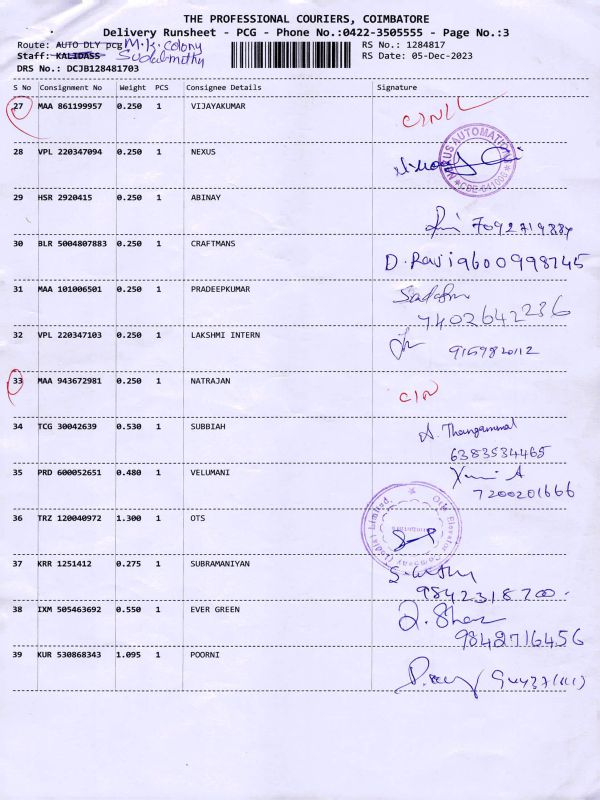 THE PROFESSIONAL COURIERS, COIMBATORE
Delivery Runsheet - PCG - Phone No.:0422-3505555 - Page No.:3
Route: AUTO DLY pcg M.K. Colony RS No.: 1284817
Staff: KALIDASS RS Date: 05-Dec-2023
DRS No.: DCJB128481703
S No Consignment No Weight PCS Consignee Details Signature
27 MAA 861199957 0.250 1 VIJAYAKUMAR
28 VPL 220347094 0.250 1 NEXUS
29 HSR 2920415 0.250 1 ABINAY
7092719884
30 BLR 5004807883 0.250 1 CRAFTMANS
D. Ravi 9600998745
31 MAA 101006501 0.250 1 PRADEEPKUMAR
7402642236
32 VPL 220347103 0.250 1 LAKSHMI INTERN
33 MAA 943672981 0.250 1 NATRAJAN
34 TCG 30042639 0.530 1 SUBBIAH
A. Thangammal
6383534465
35 PRD 600052651 0.480 1 VELUMANI
7200201666
36 TRZ 120040972 1.300 1 OTS
37 KRR 1251412 0.275 1 SUBRAMANIYAN
9842318700
38 IXM 505463692 0.550 1 EVER GREEN
9842716456
39 KUR 530868343 1.095 1 POORNI